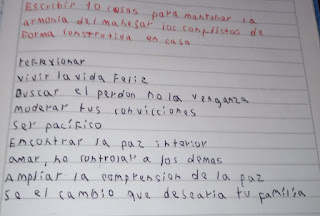 Escribir 10 cosas para mantener la
armonia del manesar los complistos de
Forma construtiva en casa
reflaxionar
vivir la vida Feliz
Buscar el perdon no la venganza
moderar tus convicciones
ser pacífico
Encontrar la paz interior
amar, no controlar a los demas
Ampliar la comprension de la paz
se el cambio que desearia tu familia